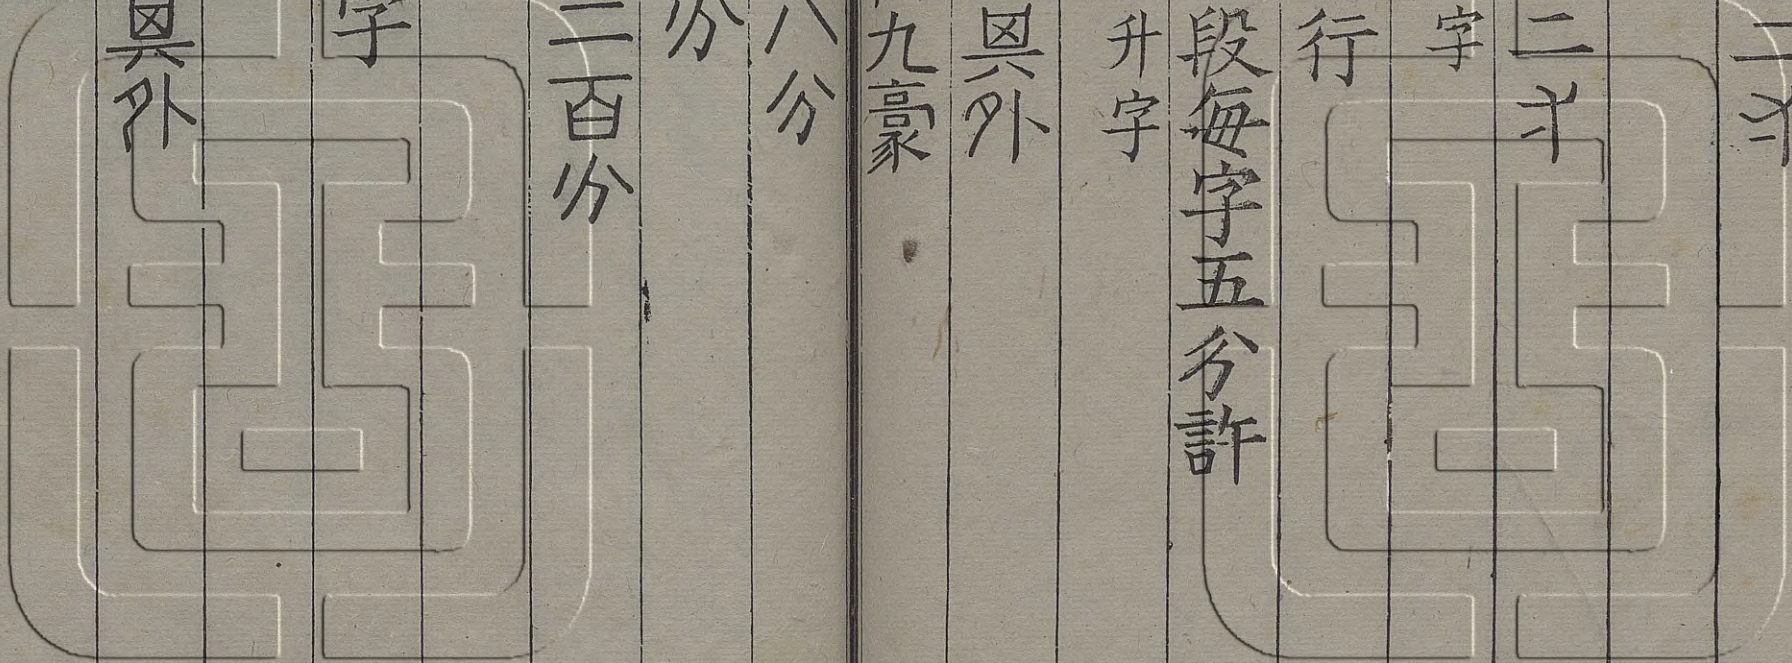 二寸
字
行
段每字五分許
升字
㒷外
九豪
八分
分
二百分
字
㒷外